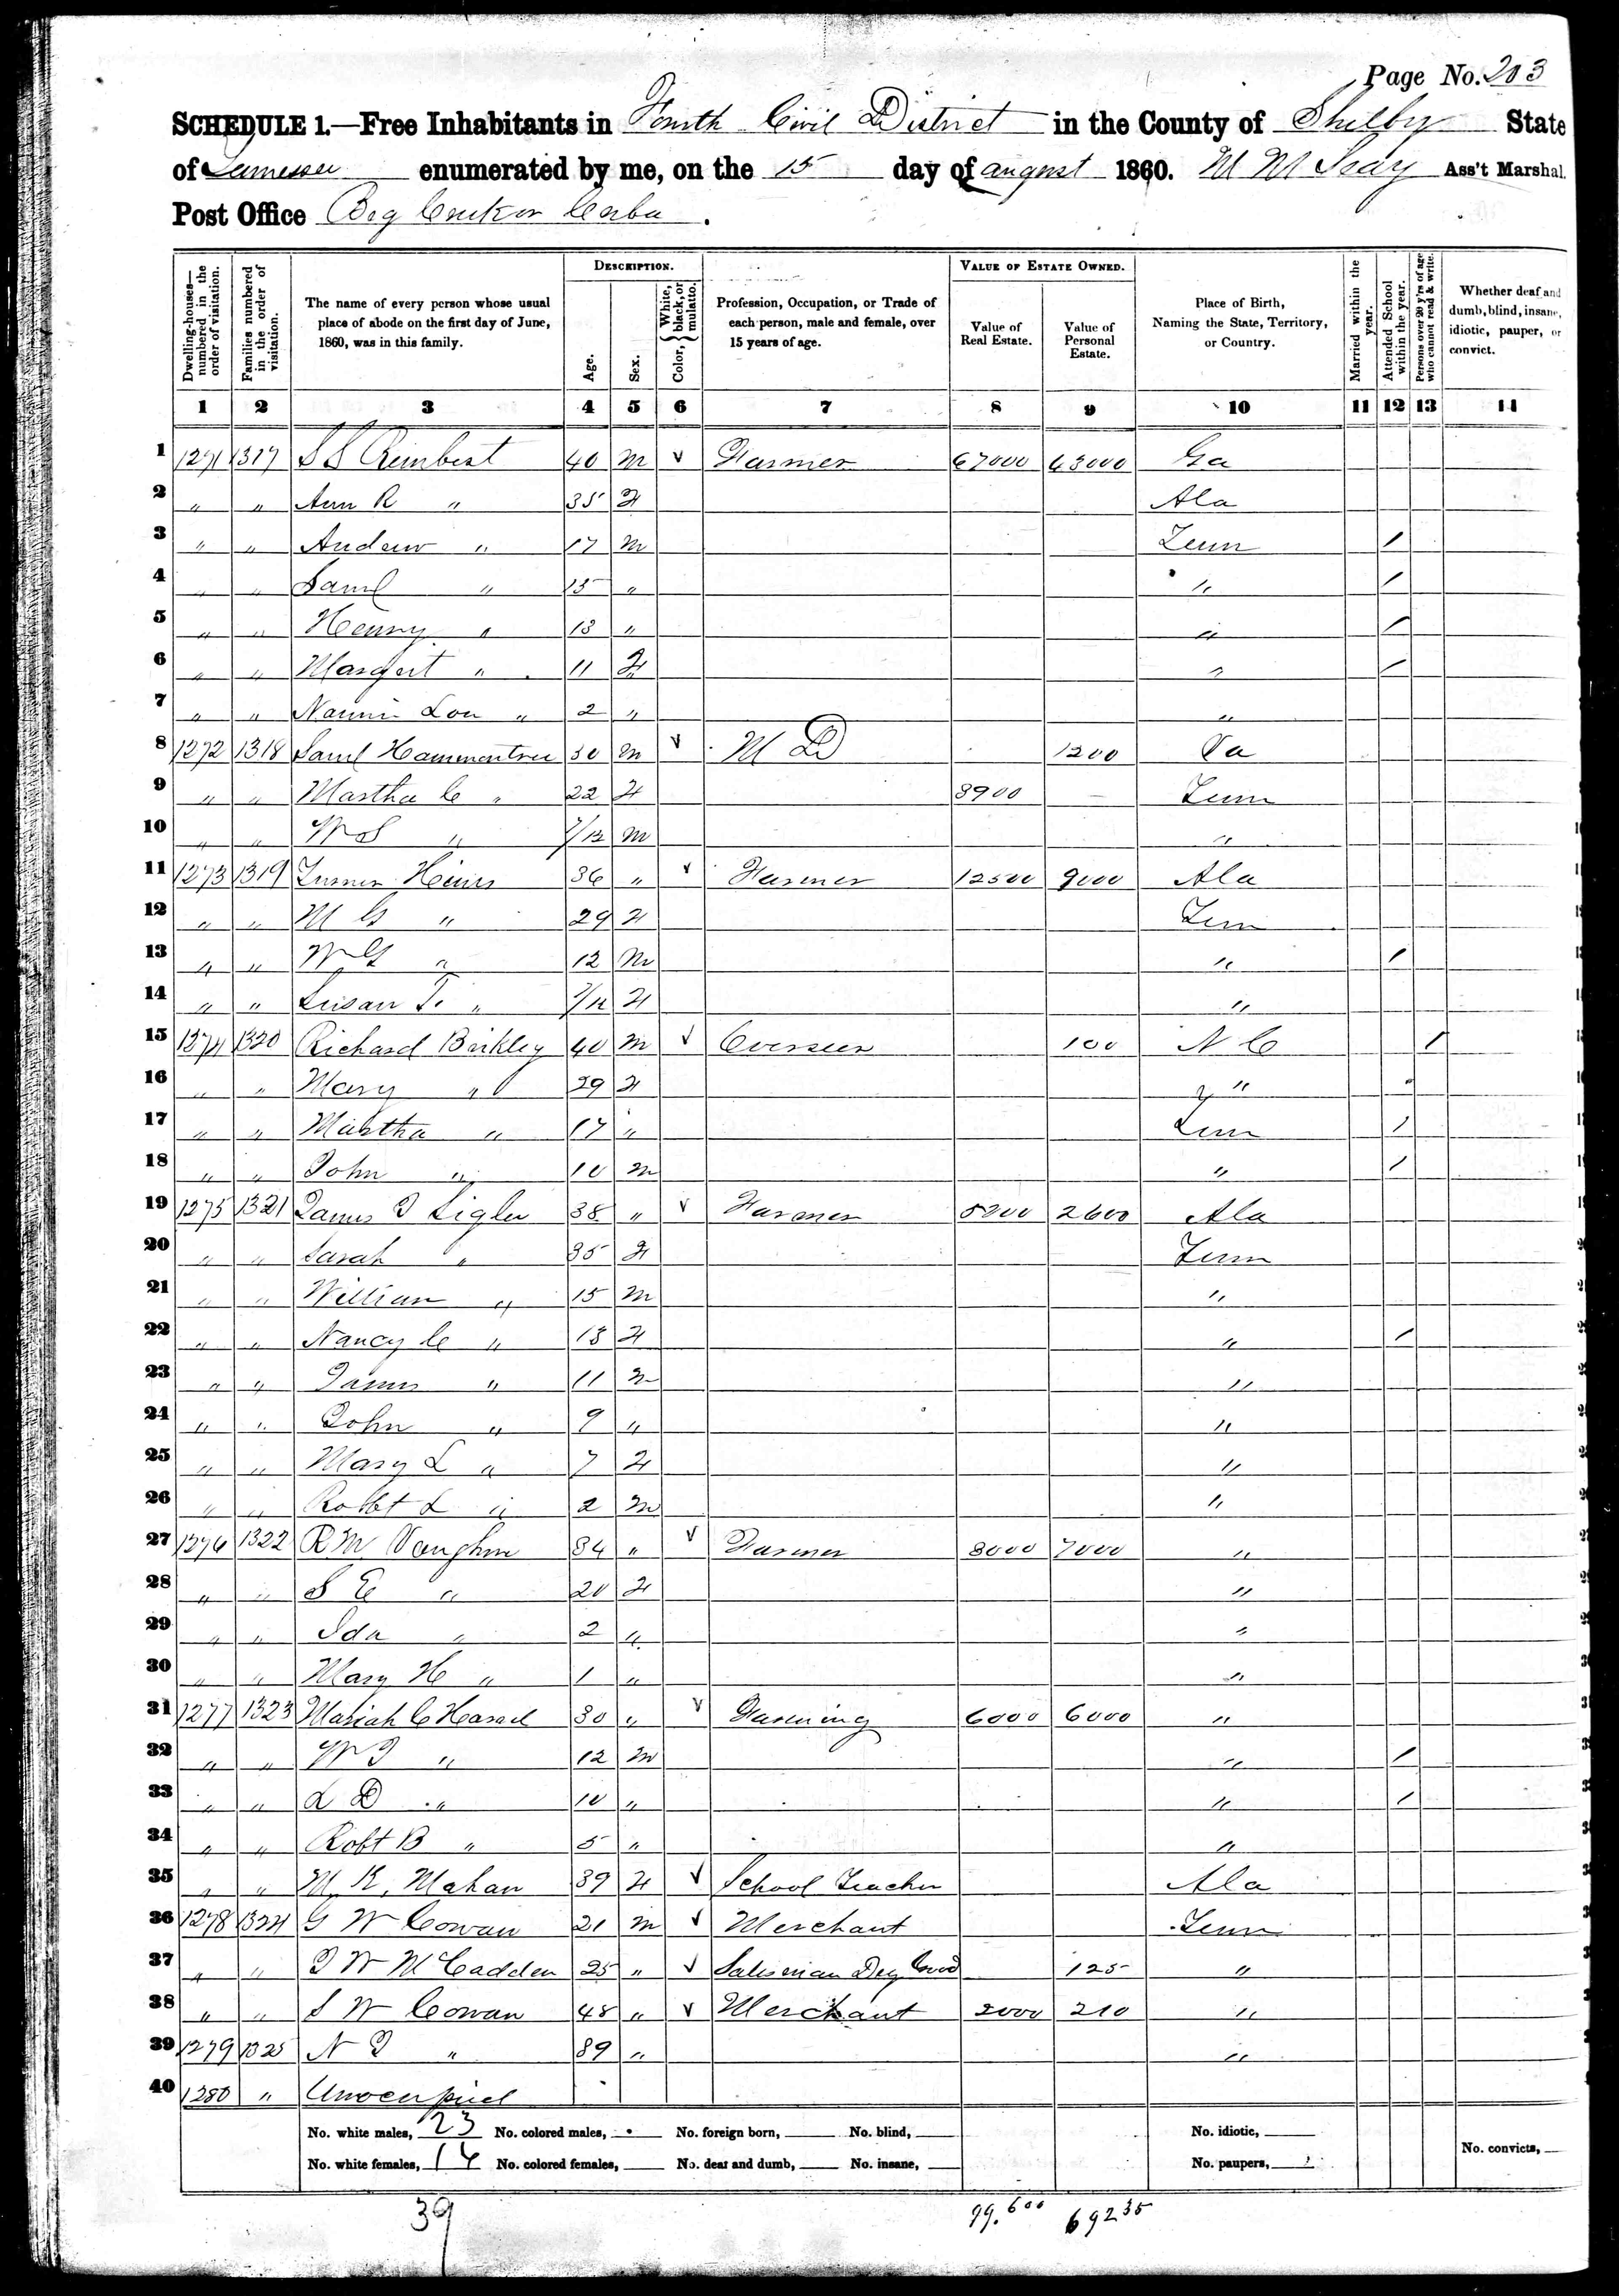 Page No. 203
SCHEDULE 1.—Free Inhabitants in Fourth Civil District in the County of Shelby State
of Tennessee enumerated by me, on the 15 day of august 1860. M M Seay Ass't Marshal.
Post Office Big Creek or Cuba.
Dwelling-houses—numbered in the order of visitation.
Families numbered in the order of visitation.
The name of every person whose usual place of abode on the first day of June, 1860, was in this family.
DESCRIPTION.
Age.
Sex.
Color, White, black, or mulatto.
Profession, Occupation, or Trade of each person, male and female, over 15 years of age.
VALUE OF ESTATE OWNED.
Value of Real Estate.
Value of Personal Estate.
Place of Birth, Naming the State, Territory, or Country.
Married within the year.
Attended School within the year.
Persons over 20 y'rs of age who cannot read & write.
Whether deaf and dumb, blind, insane, idiotic, pauper, or convict.
1 2 3 4 5 6 7 8 9 10 11 12 13 14
1 1271 1317 S S Rembert 40 m v Farmer 67000 43000 Ga
2 " " Ann R " 35 F Ala
3 " " Andrew " 17 m Tenn /
4 " " Saml " 15 " " /
5 " " Henny " 13 " " /
6 " " Margert " 11 F " /
7 " " Nannie Lou " 2 " "
8 1272 1318 Saml Hammontree 30 m v M D 1200 Va
9 " " Martha C " 22 F 8900 — Tenn
10 " " W S " 7/12 m "
11 1273 1319 Turner Heirs 36 " v Farmer 12500 9000 Ala
12 " " M G " 29 F Tenn
13 " " W G " 12 m " /
14 " " Susan T. " 7/12 F "
15 1274 1320 Richard Brikley 40 m v Overseer 100 N C /
16 " " Mary " 29 F "
17 " " Martha " 17 " Tenn /
18 " " John " 10 m " /
19 1275 1321 James J Sigler 38 " v Farmer 2600 Ala
20 " " Sarah " 35 F Tenn
21 " " William " 15 m "
22 " " Nancy C " 13 F " /
23 " " James " 11 m "
24 " " John " 9 " "
25 " " Mary L " 7 F "
26 " " Robt L " 2 m "
27 1276 1322 R M Vaughn 34 " v Farmer 8000 7000 "
28 " " S E " 20 F "
29 " " Ida " 2 " "
30 " " Mary H " 1 " "
31 1277 1323 Mariah C 30 " v Farming 6000 6000 "
32 " " W J " 12 m " /
33 " " L D " 10 " " /
34 " " Robt B " 5 " "
35 " " M K, Mahan 39 F v School Teacher Ala
36 1278 1324 G W Cowan 21 m v Merchant Tenn
37 " " J W McCadden 25 " v Salesman Dry Good 125 "
38 " " S W Cowan 48 " v Merchant 2000 210 "
39 1279 1325 N J " 39 " "
40 1280 " Unocupied
No. white males, 23 No. colored males, No. foreign born, No. blind, No. idiotic,
No. white females, 16 No. colored females, No. deaf and dumb, No. insane, No. paupers, No. convicts,
39 99.600 69235